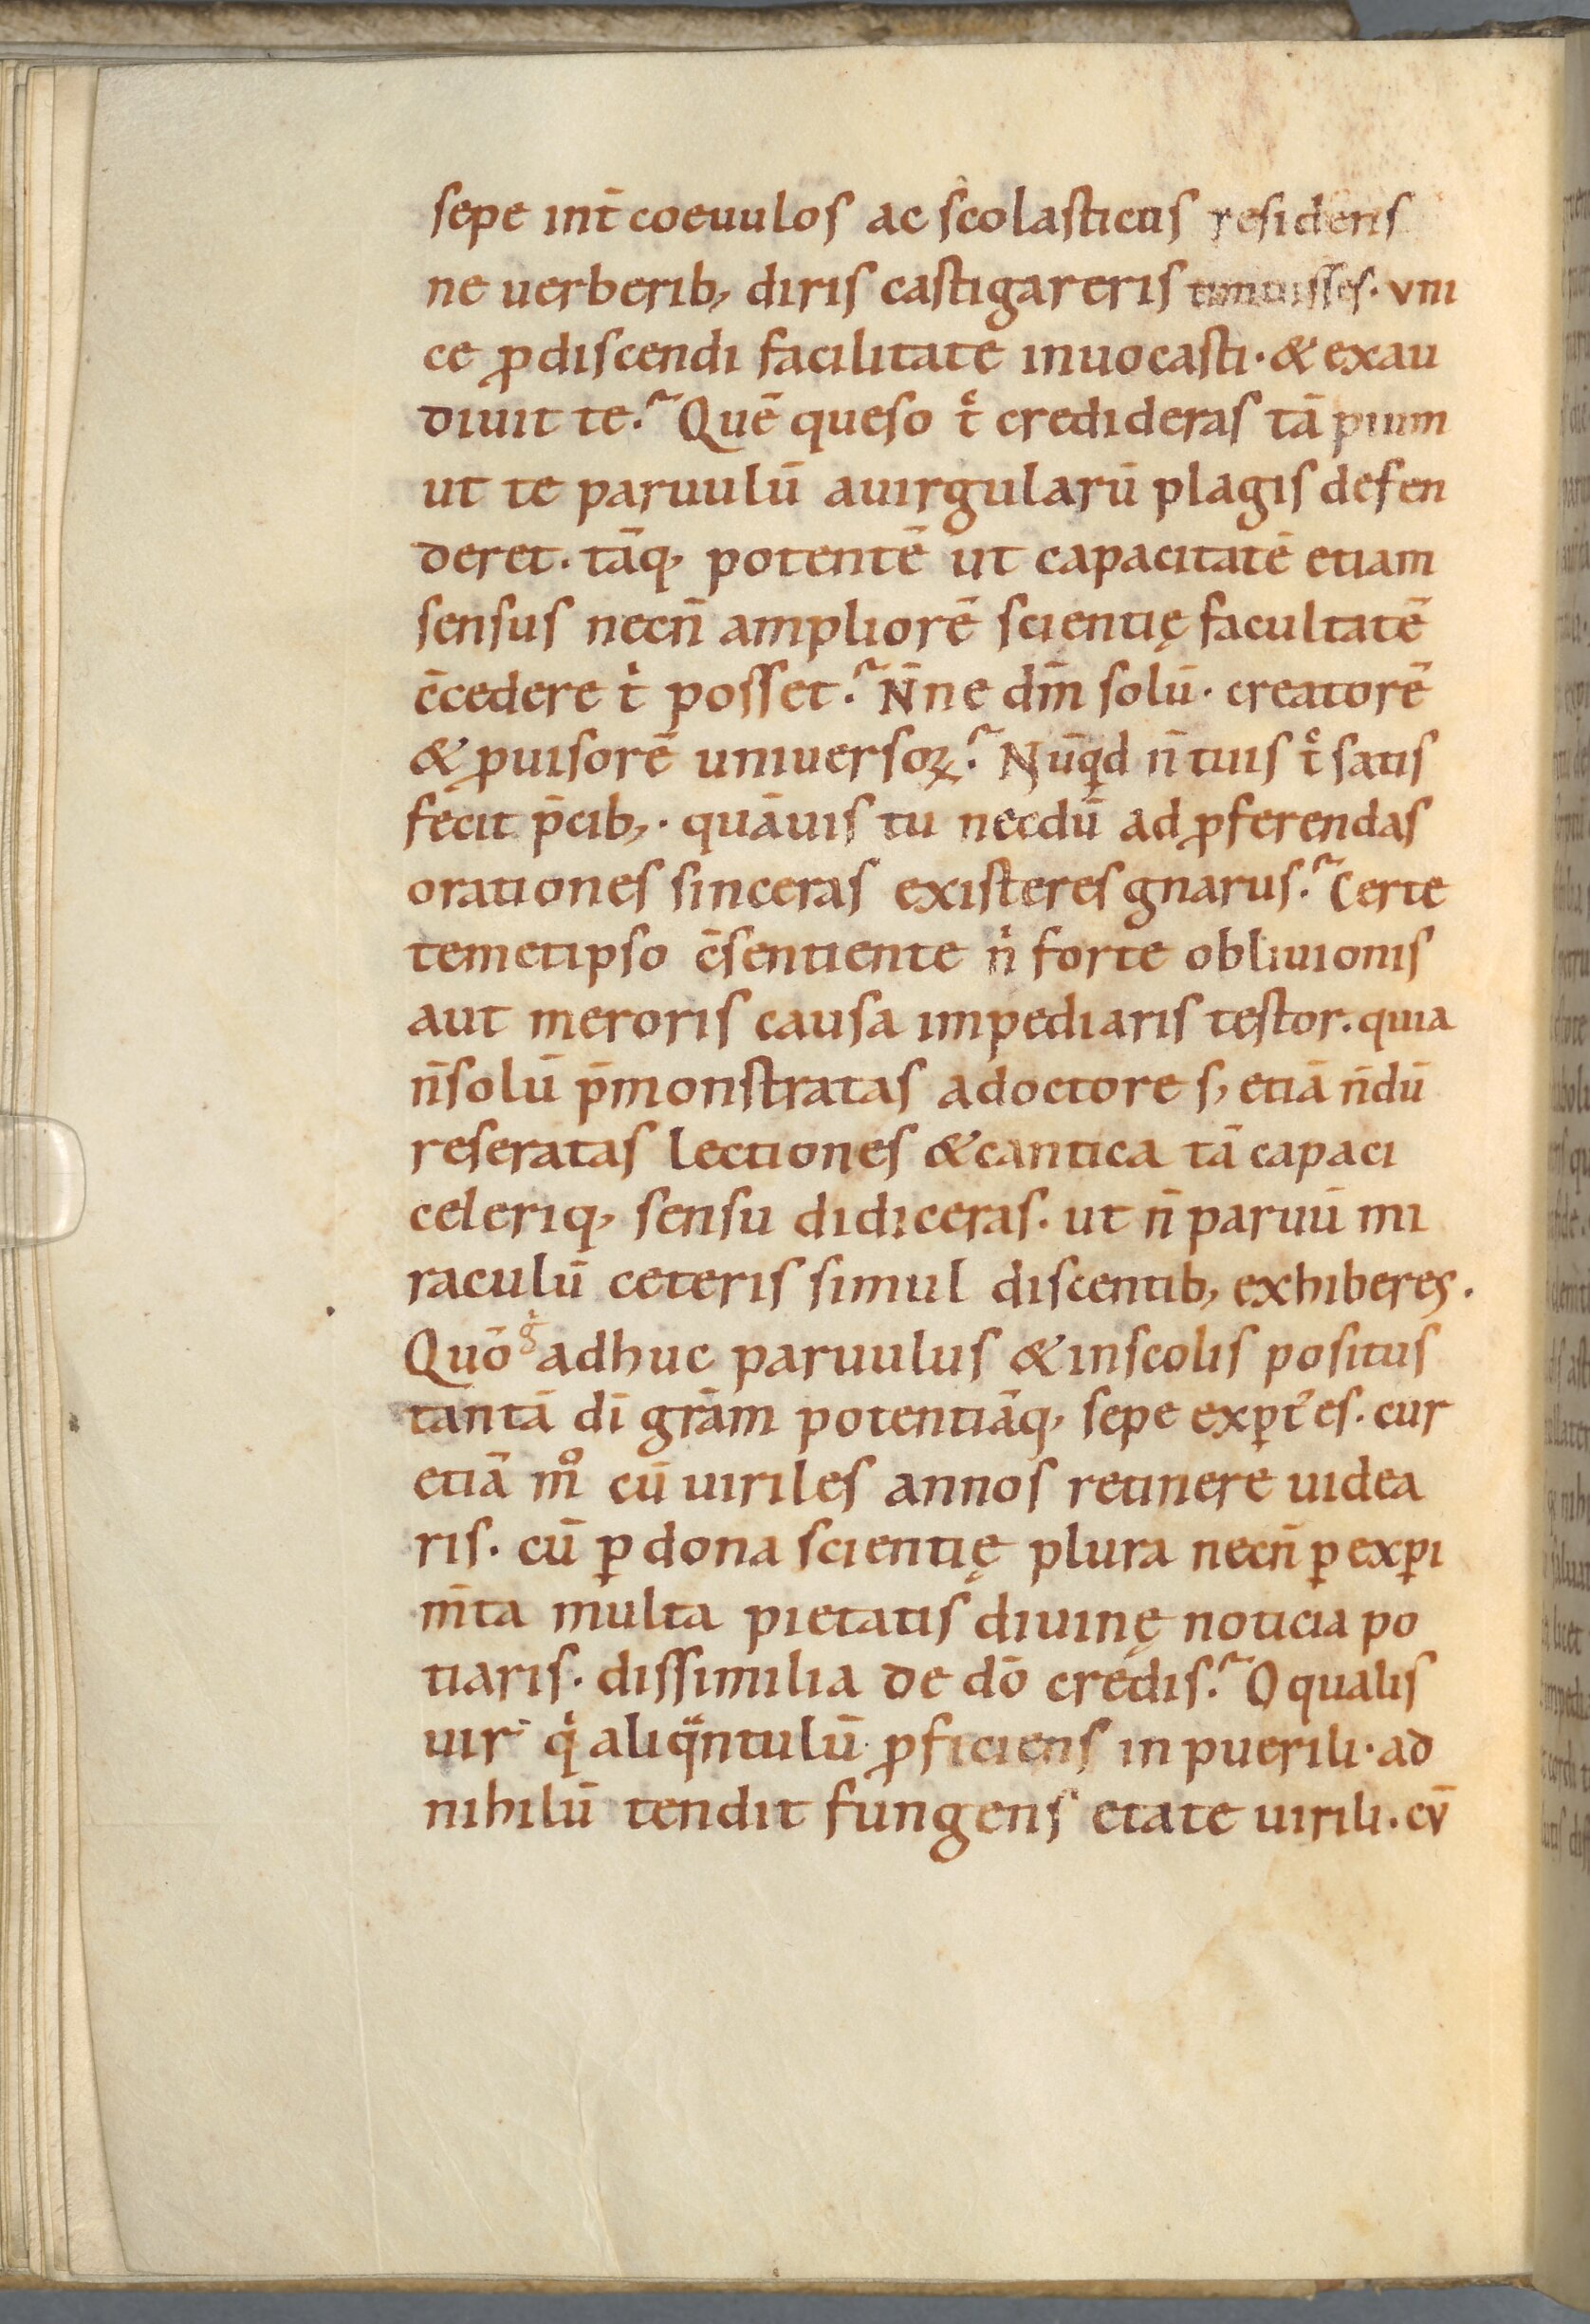 sepe int̄ coeuulos ac scolasticus residens
ne uerberib; diris castigareris timuisses. vni
ce ꝓdiscendi facilitatē inuocasti. & exau
diuit te? Quē queso tͤ credideras tā pium
ut te paruulū auirgularū plagis defen
deret. tāq; potentē ut capacitatē etiam
sensus necn̄ ampliorē scientię facultatē
c̄cedere tͥ posset? N̄ne dm̄ solū. creatorē
& ꝓuisorē uniuersoꝝ? Nūqͥd n̄ tuis tͨ satis
fecit p̄cib;. quāuis tu necdū ad ꝓferendas
orationes sinceras existeres gnarus? Certe
temetipso c̄sentiente nͥ forte obliuionis
aut meroris causa impediaris testor. quia
n̄solū p̄monstratas adoctore s; etiā n̄dū
reseratas lectiones & cantica tā capaci
celeriq; sensu didiceras. ut n̄ paruū mi
raculū ceteris simul discentib; exhiberes.
Quō gͥ adhuc paruulus & inscolis positus
tantā dī grām potentiāq; sepe exꝑt᷒ es. cur
etiā mͦ cū uiriles annos retinere uidea
ris. cū ꝑ dona scientię plura necn̄ ꝑ exꝑi
m̄ta multa pietatis diuinę noticia po
tiaris. dissimilia de dō credis? O qualis
uir qͥ aliqͣntulū ꝓficiens in puerili. ad
nihilū tendit fungens etate uirili. cv̄